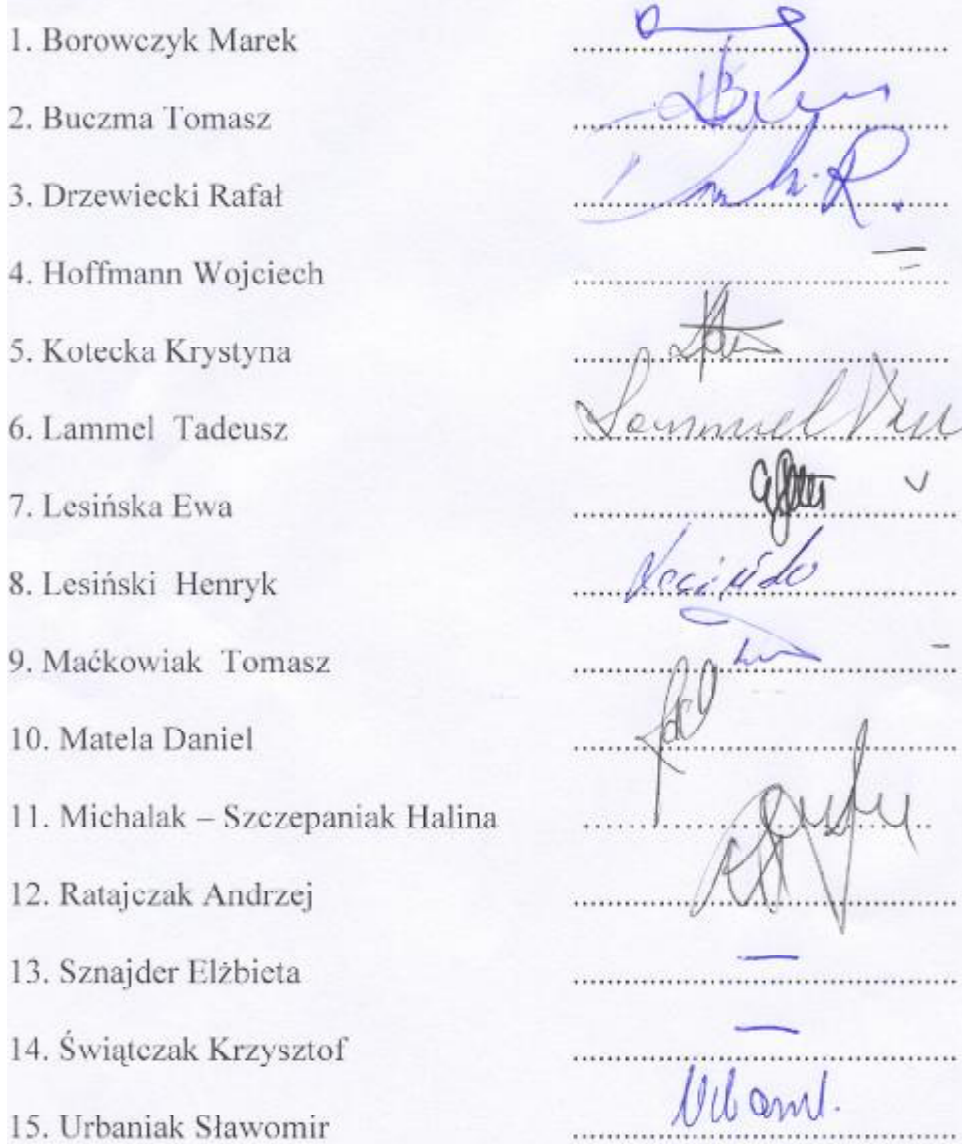 1. Borowczyk Marek ........................................
2. Buczma Tomasz ........................................
3. Drzewiecki Rafał ........................................
4. Hoffmann Wojciech ........................................
5. Kotecka Krystyna ........................................
6. Lammel Tadeusz ........................................ Lammel
7. Lesińska Ewa ........................................
8. Lesiński Henryk ........................................
9. Maćkowiak Tomasz ........................................
10. Matela Daniel ........................................
11. Michalak – Szczepaniak Halina ........................................
12. Ratajczak Andrzej ........................................
13. Sznajder Elżbieta ........................................ —
14. Świątczak Krzysztof ........................................ —
15. Urbaniak Sławomir ........................................